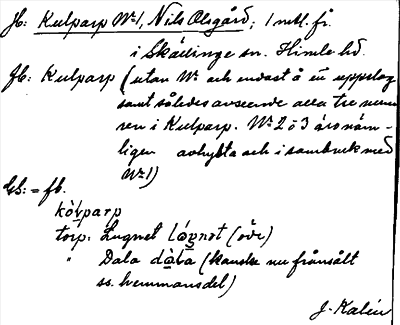 Jb: Kulparp Nº 1, Nils Olsgård; 1 mtl. fr.
i Skällinge sn. Himle hd.
Fb: Kulparp (utan Nº och endast å ett uppslag
samt således avseende alla tre num-
ren i Kulparp. Nº 2 o 3 äro näm-
ligen avhysta och i sambruk med
Nº 1)
Gs: = fb.
kòvparp
torp: Lugnet (öde)
" Dala (kanske nu frånsålt
ss. hemmansdel)
J. Kalén